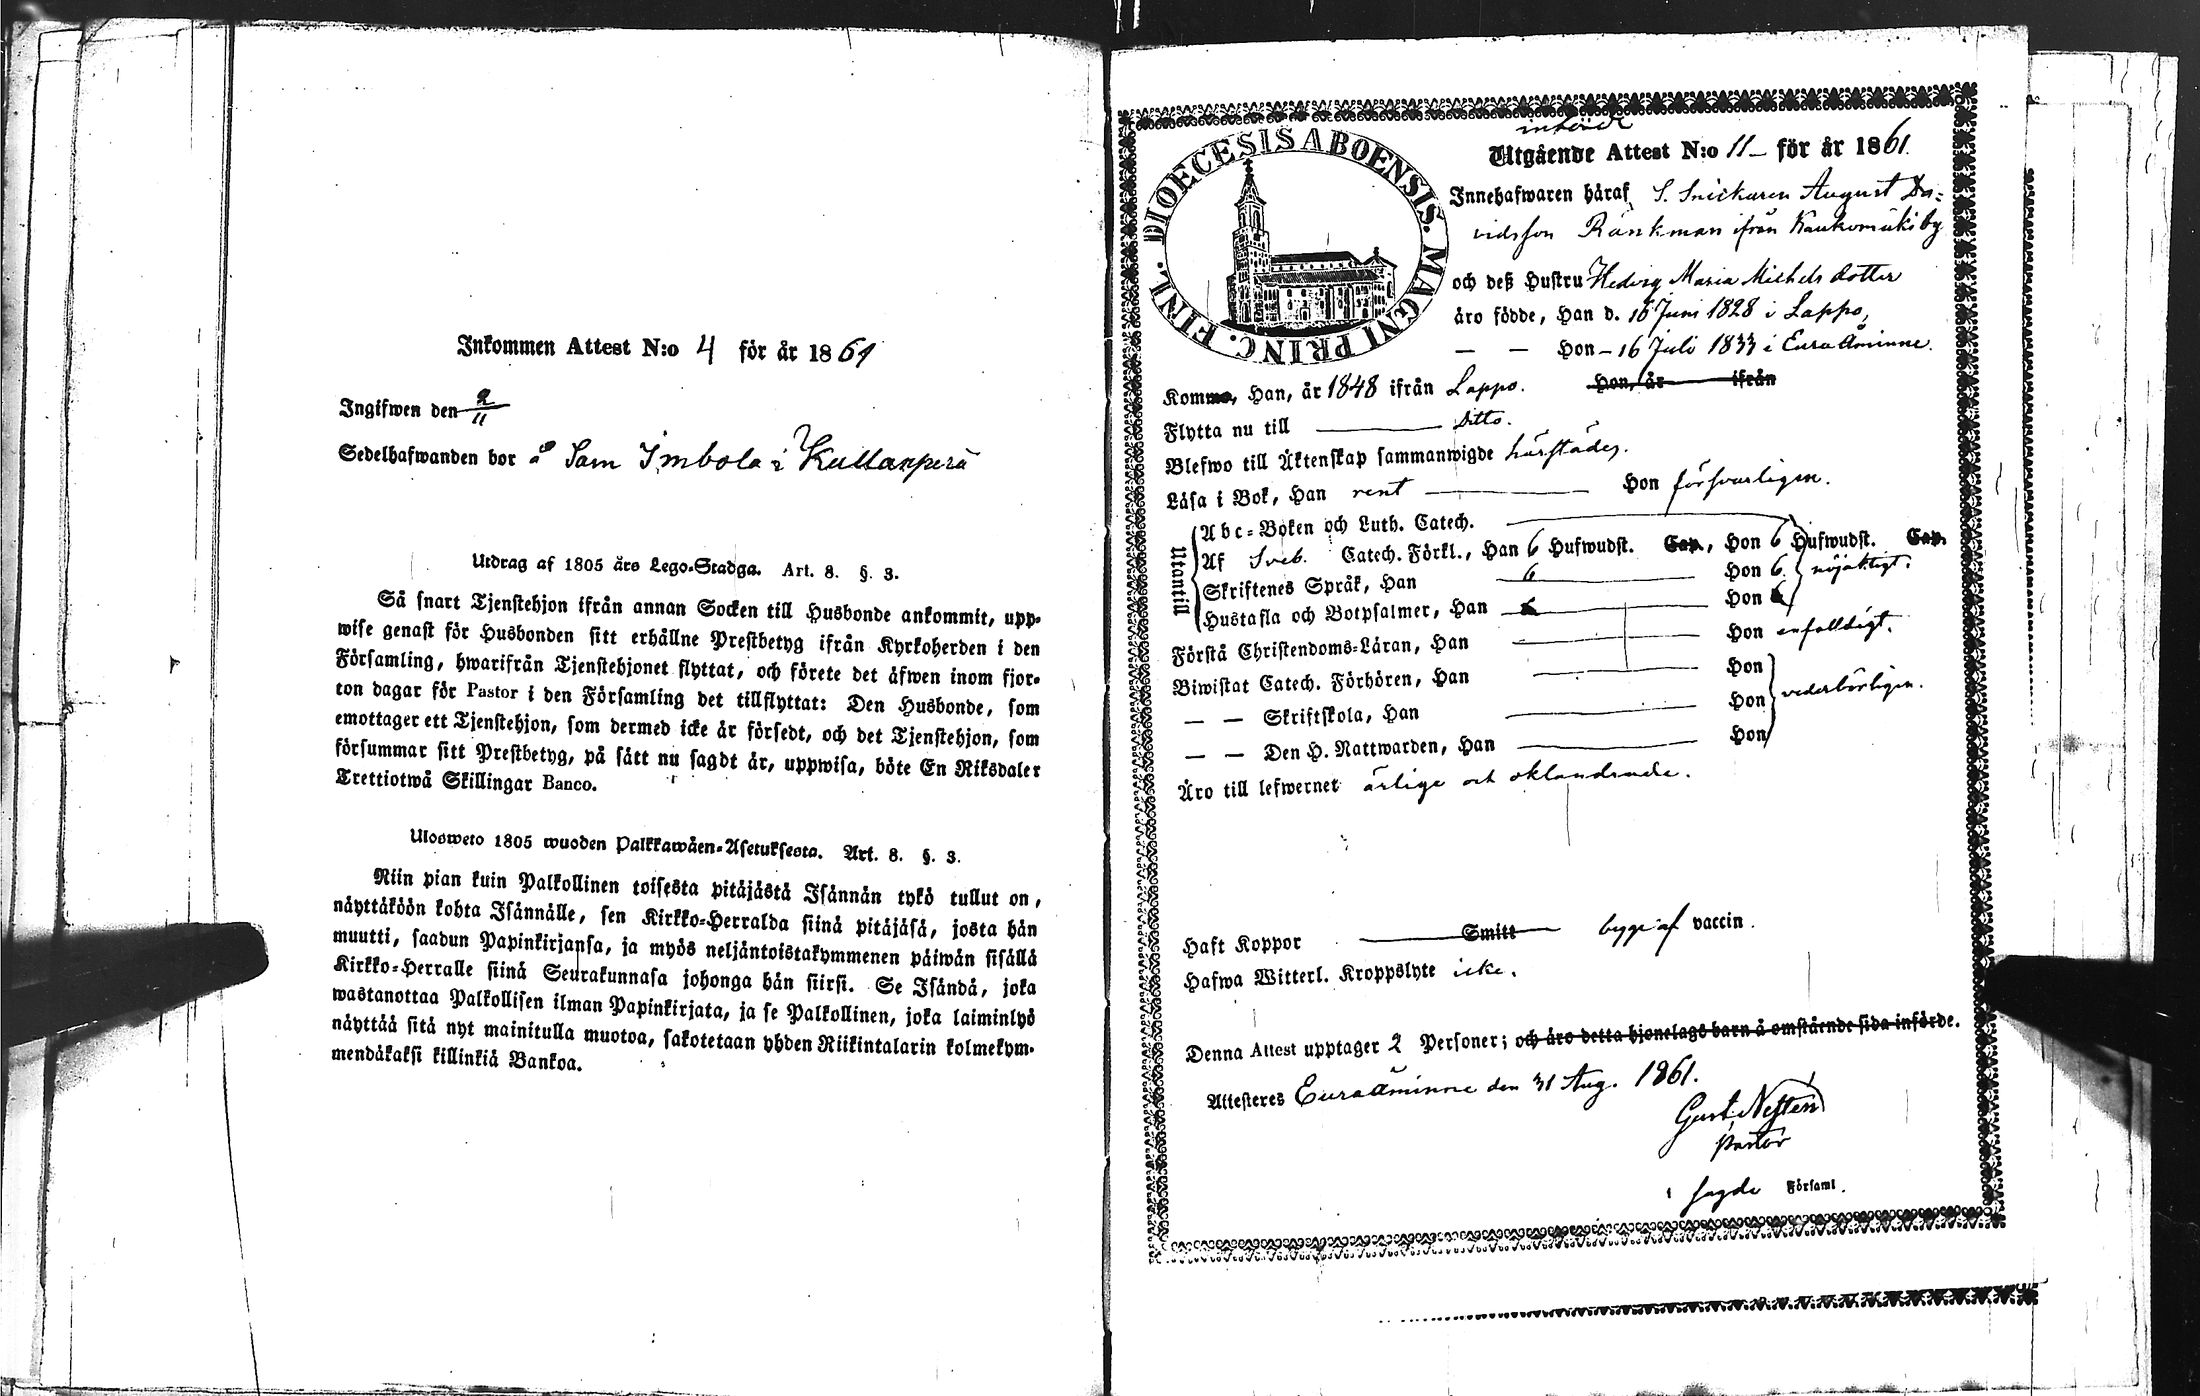 Inkommen Attest N:o 4 för år 1861
Ingifwen den 2/11
Sedelhafwanden bor å Sam Imbola i Kullanperä
Utdrag af 1805 års Lego-Stadga. Art. 8. §. 3.
Så snart Tjenstehjon ifrån annan Socken till Husbonde ankommit, upp-
wise genast för Husbonden sitt erhållne Prestbetyg ifrån Kyrkoherden i den
Församling, hwarifrån Tjenstehjonet flyttat, och förete det äfwen inom fjor-
ton dagar för Pastor i den Församling det tillflyttat: Den Husbonde, som
emottager ett Tjenstehjon, som dermed icke är försedt, och det Tjenstehjon, som
försummar sitt Prestbetyg, på sätt nu sagdt är, uppwisa, böte En Riksdaler
Trettiotwå Skillingar Banco.
Ulosweto 1805 wuoden Palkkawäen-Asetuksesta. Art. 8. §. 3.
Niin pian kuin Palkollinen toisesta pitäjästä Isännän tykö tullut on,
näyttäköön kohta Isännälle, sen Kirkko-Herralda siinä pitäjäsä, josta hän
muutti, saadun Papinkirjansa, ja myös neljäntoistakymmenen päiwän sisällä
Kirkko-Herralle siinä Seurakunnasa johonga hän siirsi. Se Isändä, joka
wastanottaa Palkollisen ilman Papinkirjata, ja se Palkollinen, joka laiminlyö
näyttää sitä nyt mainitulla muotoa, sakotetaan yhden Riikintalarin kolmekym-
mendäkaksi killinkiä Bankoa.
DIOECESIS ABOENSIS. MAGNI PRINC. FINL.
Utgående Attest N:o 11 – för år 1861.
Innehafwaren häraf S. Snickaren August Da-
vidsson Ränkman ifrån Kaukomäki by
och deß Hustru Hedvig Maria Michels dotter
äro födde, Han d. 16 Juni 1828 i Lappo,
— — Hon – 16 Juli 1833 i Euraåminne.
Komme, Han, år 1848 ifrån Lappo. Hon, år ifrån
Flytta nu till ditto.
Blefwo till Äktenskap sammanwigde härstädes.
Läsa i Bok, Han rent Hon försvarligen.
Utantill
Abc-Boken och Luth. Catech.
Af Sveb. Catech. Förkl., Han 6 Hufwudst. Cap., Hon 6 Hufwudst. Cap.
Skriftenes Språk, Han 6 Hon 6 nöjaktigt.
Hustafla och Botpsalmer, Han 6 Hon 6
Förstå Christendoms-Läran, Han Hon enfaldigt.
Biwistat Catech. Förhören, Han Hon
— — Skriftskola, Han Hon vederbörligen.
— — Den H. Nattwarden, Han Hon
Äro till lefwernet ärlige och oklandrade.
Haft Koppor Smitt bägge af vaccin.
Hafwa Witterl. Kroppslyte icke.
Denna Attest upptager 2 Personer; och äro detta hjonelags barn å omstående sida införde.
Attesteres Euraåminne den 31 Aug. 1861.
Pastor
i sagde Församl.